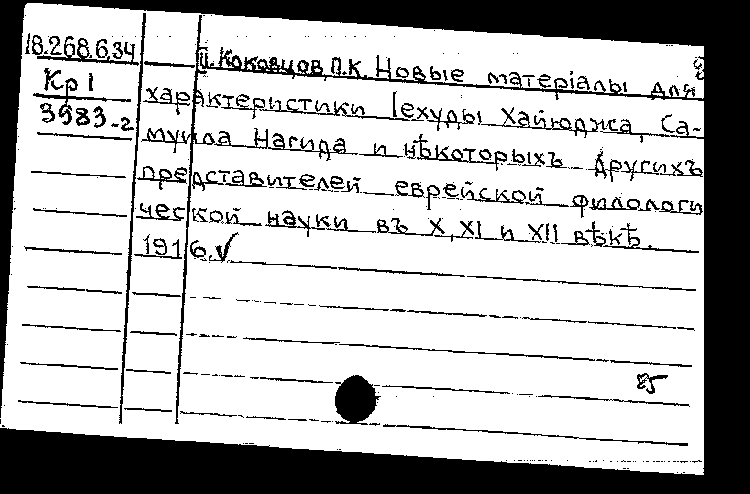 18.268.6.34
Кр 1
3983-2
Ц. Коковцов, П.К. Новые матеріалы для
характеристики Іехуды Хайюджа, Са-
муила Нагида и нѣкоторыхъ других
представителей еврейской филологи
ческой науки въ X, XI и XII вѣкѣ.
1916. √
25